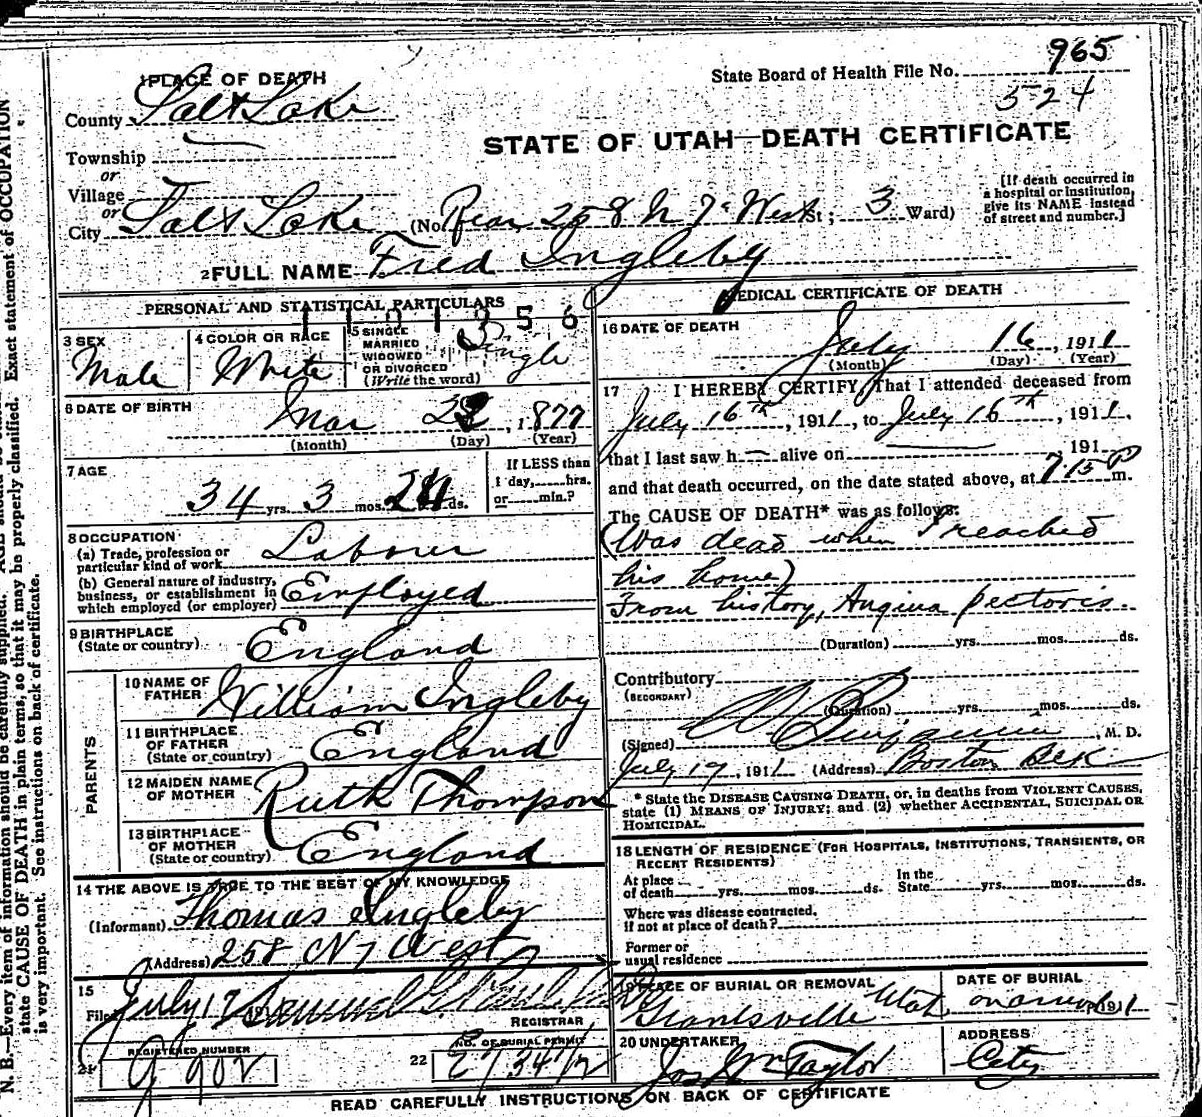 965
State Board of Health File No.
524
1 PLACE OF DEATH
County Salt Lake
STATE OF UTAH—DEATH CERTIFICATE
Township
or
Village
or
City Salt Lake (No. Rear 258 N 7th West St; 3 Ward)
[If death occurred in
a hospital or institution,
give its NAME instead
of street and number.]
2 FULL NAME Fred Ingleby
PERSONAL AND STATISTICAL PARTICULARS
3 SEX
Male
4 COLOR OR RACE
White
5 SINGLE
MARRIED
WIDOWED
OR DIVORCED
(Write the word)
Single
6 DATE OF BIRTH
Mar , 1877
(Month) (Day) (Year)
7 AGE
34 yrs. 3 mos. ds.
If LESS than
1 day, hrs.
or min.?
8 OCCUPATION
(a) Trade, profession or
particular kind of work Laborer
(b) General nature of industry,
business, or establishment in
which employed (or employer) Employed
9 BIRTHPLACE
(State or country) England
PARENTS
10 NAME OF
FATHER William Ingleby
11 BIRTHPLACE
OF FATHER
(State or country) England
12 MAIDEN NAME
OF MOTHER Ruth Thompson
13 BIRTHPLACE
OF MOTHER
(State or country) England
14 THE ABOVE IS TRUE TO THE BEST OF MY KNOWLEDGE
(Informant) Thomas Ingleby
(Address) 258 N 7 West
15
Filed July 17
REGISTRAR
21 REGISTERED NUMBER
22 NO. OF BURIAL PERMIT
MEDICAL CERTIFICATE OF DEATH
16 DATE OF DEATH
July 16, 1911
(Month) (Day) (Year)
17 I HEREBY CERTIFY, That I attended deceased from
July 16th, 1911, to July 16th, 1911,
that I last saw h— alive on — 191
and that death occurred, on the date stated above, at 7 15 P m.
The CAUSE OF DEATH* was as follows:
(Was dead when I reached
his home)
From history, Angina pectoris.
(Duration) yrs. mos. ds.
Contributory
(SECONDARY)
(Duration) yrs. mos. ds.
(Signed) , M. D.
July 17, 1911 (Address) Boston Blk
* State the DISEASE CAUSING DEATH, or, in deaths from VIOLENT CAUSES,
state (1) MEANS OF INJURY; and (2) whether ACCIDENTAL, SUICIDAL OR
HOMICIDAL.
18 LENGTH OF RESIDENCE (FOR HOSPITALS, INSTITUTIONS, TRANSIENTS, OR
RECENT RESIDENTS)
At place
of death yrs. mos. ds. In the
State yrs. mos. ds.
Where was disease contracted,
if not at place of death?
Former or
usual residence
19 PLACE OF BURIAL OR REMOVAL
Grantsville Utah
DATE OF BURIAL
1911
20 UNDERTAKER
Jos Wm Taylor
ADDRESS
City
READ CAREFULLY INSTRUCTIONS ON BACK OF CERTIFICATE
N. B.—Every item of information should be carefully supplied. AGE should be
state CAUSE OF DEATH in plain terms, so that it may be properly classified. Exact statement of OCCUPATION
is very important. See instructions on back of certificate.